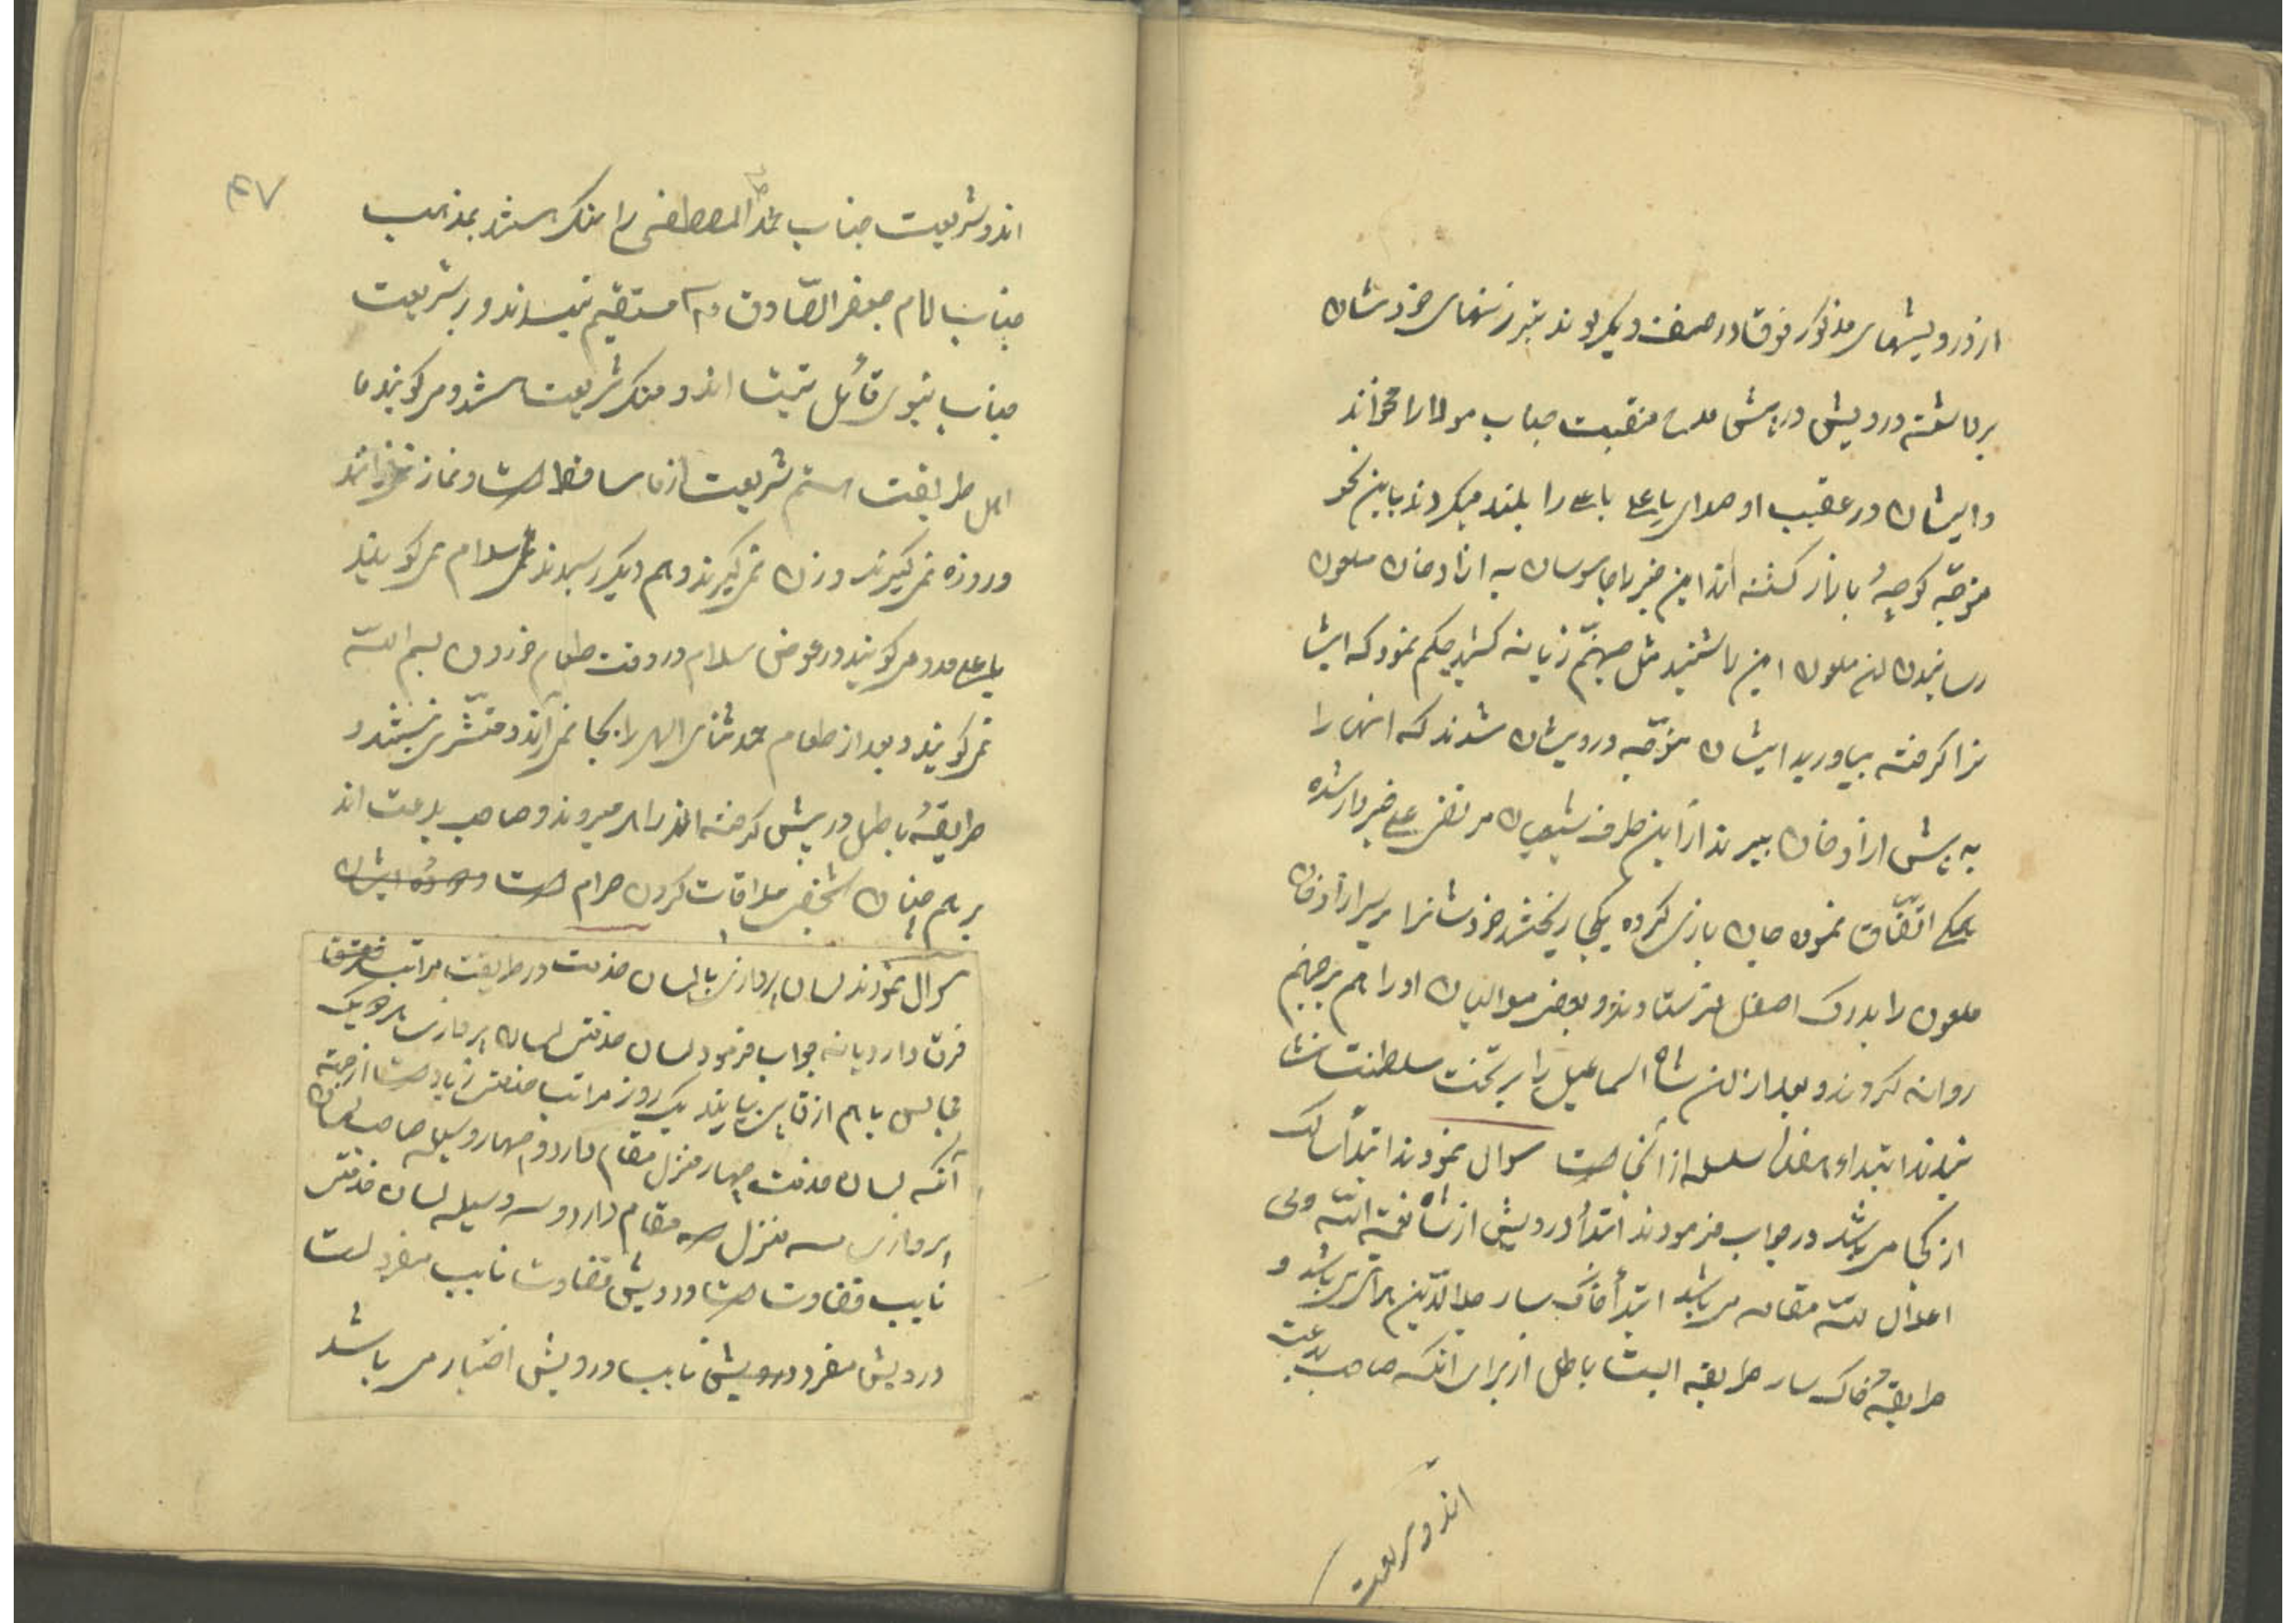 از درویشهای مذکور فوقا در صف دیگر بودند تبرزینهای خودشان
برداشته درویش در پیش منقبت جناب مولا را خواند
و ایشان در عقب او صدای یا علی یا علی را بلند میکردند باین نحو
متوجّه کوچهٔ بازار کشته اند این خبر را جاسوسان به ازادخان ملعون
رسانیدن ان ملعون این را شنید مثل جهنّم زبانه کشید حکم نمود که ایشا
نرا کرفته بیاورید ایشان متوجّه درویشان شدند که انها را
به پیش ازادخان ببرند از این طرف شیعیان مرتضی علی خبردار شده
اتّفّاق نموده جان بازی کرده یکجا ریختند خودشانرا بر سر ازادخان
ملعون را بدرک اصفل فرستادند و بعضی موالیان او را هم بر جهنم
روانه کردند و بعد از ان شاه اسماعیل را بر تخت سلطنت نشا
نیدند ابتداء سلسله از انجا است سوال نمودند ابتدأ سالک
از کجا می باشد در جواب فرمودند ابتدأ درویش از شاه نعمة اللّه ولی
می باشد ابتدأ خاک سار جلالدّین می باشد و
طریقهٔ خاک سار طریقه است باطل از برای انکه صاحب بدعت
اند و شریعت
۴۷
اند و شریعت جناب محمّد المصطفی را منکر هستند بمذهب
جناب امام جعفر الصّادق مستقیم نیستند و بر شریعت
جناب نبوی قائل نیست اند و منکر شریعت هستند و می کویند ما
اهل طریقت هستم شریعت از ما ساقط است و نماز نمی خوانند
و روزه نمی کیرند و زن نمی کیرند و هم دیکر رسیدند سلام نمی کویند
یا علی مدد می کویند در عوض سلام در وقت طعام خوردن بسم اللّه
نمی کویند و بعد از طعام حمد ثنای الهی را بجا نمی آرند و متشرّی نیستند و
طریقهٔ باطل در پیش کرفته اند راه میروند و صاحب بدعت اند
بر هم چنان شخص ملاقات کردن حرام است
سوال نمودند لسان پردازی با لسان خدمت در طریقت مراتب
فرق دارد یا نه جواب فرمود لسان خدمتی لسان پردازی با هر یک
مجالس با هم از قاپی بیایند یک روز مراتب خدمتی زیاد است از جهته
آنکه لسان خدمت چهار منزل مقام دارد و چهار وسیله صاحب لسان
پردازی سه منزل سه مقام دارد و سه وسیله لسان خدمتی
نایب قضاوت است و درویش قضاوت نایب مفرد است
درویش مفرد درویش نایب درویش اختیار می باشد